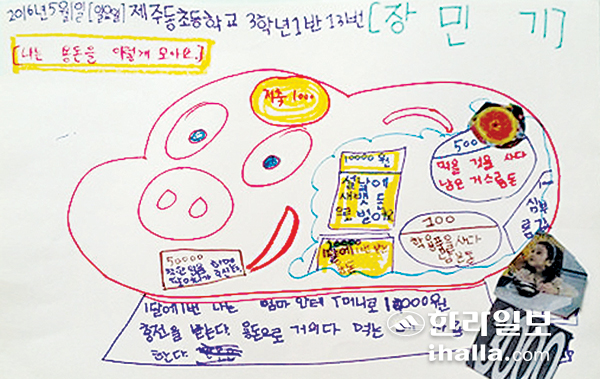 2016년5월1일[일요일] 제주동초등학교 3학년1반 13번 [장민기]
[나는 용돈을 이렇게 모아요.]
저축 1000
10000원
설날에
새뱃돈
으로 벌어
10000
1달에1번
용돈
500
먹을 것을 사다
남은 거스름돈
100
학용품을 사다
남은돈
심부
름
50000
1달에1번 나는 엄마 한테 T머니로 10000원
충전을 받는다. 용돈으로 거의다
한다.
한라일보
ihalla.com